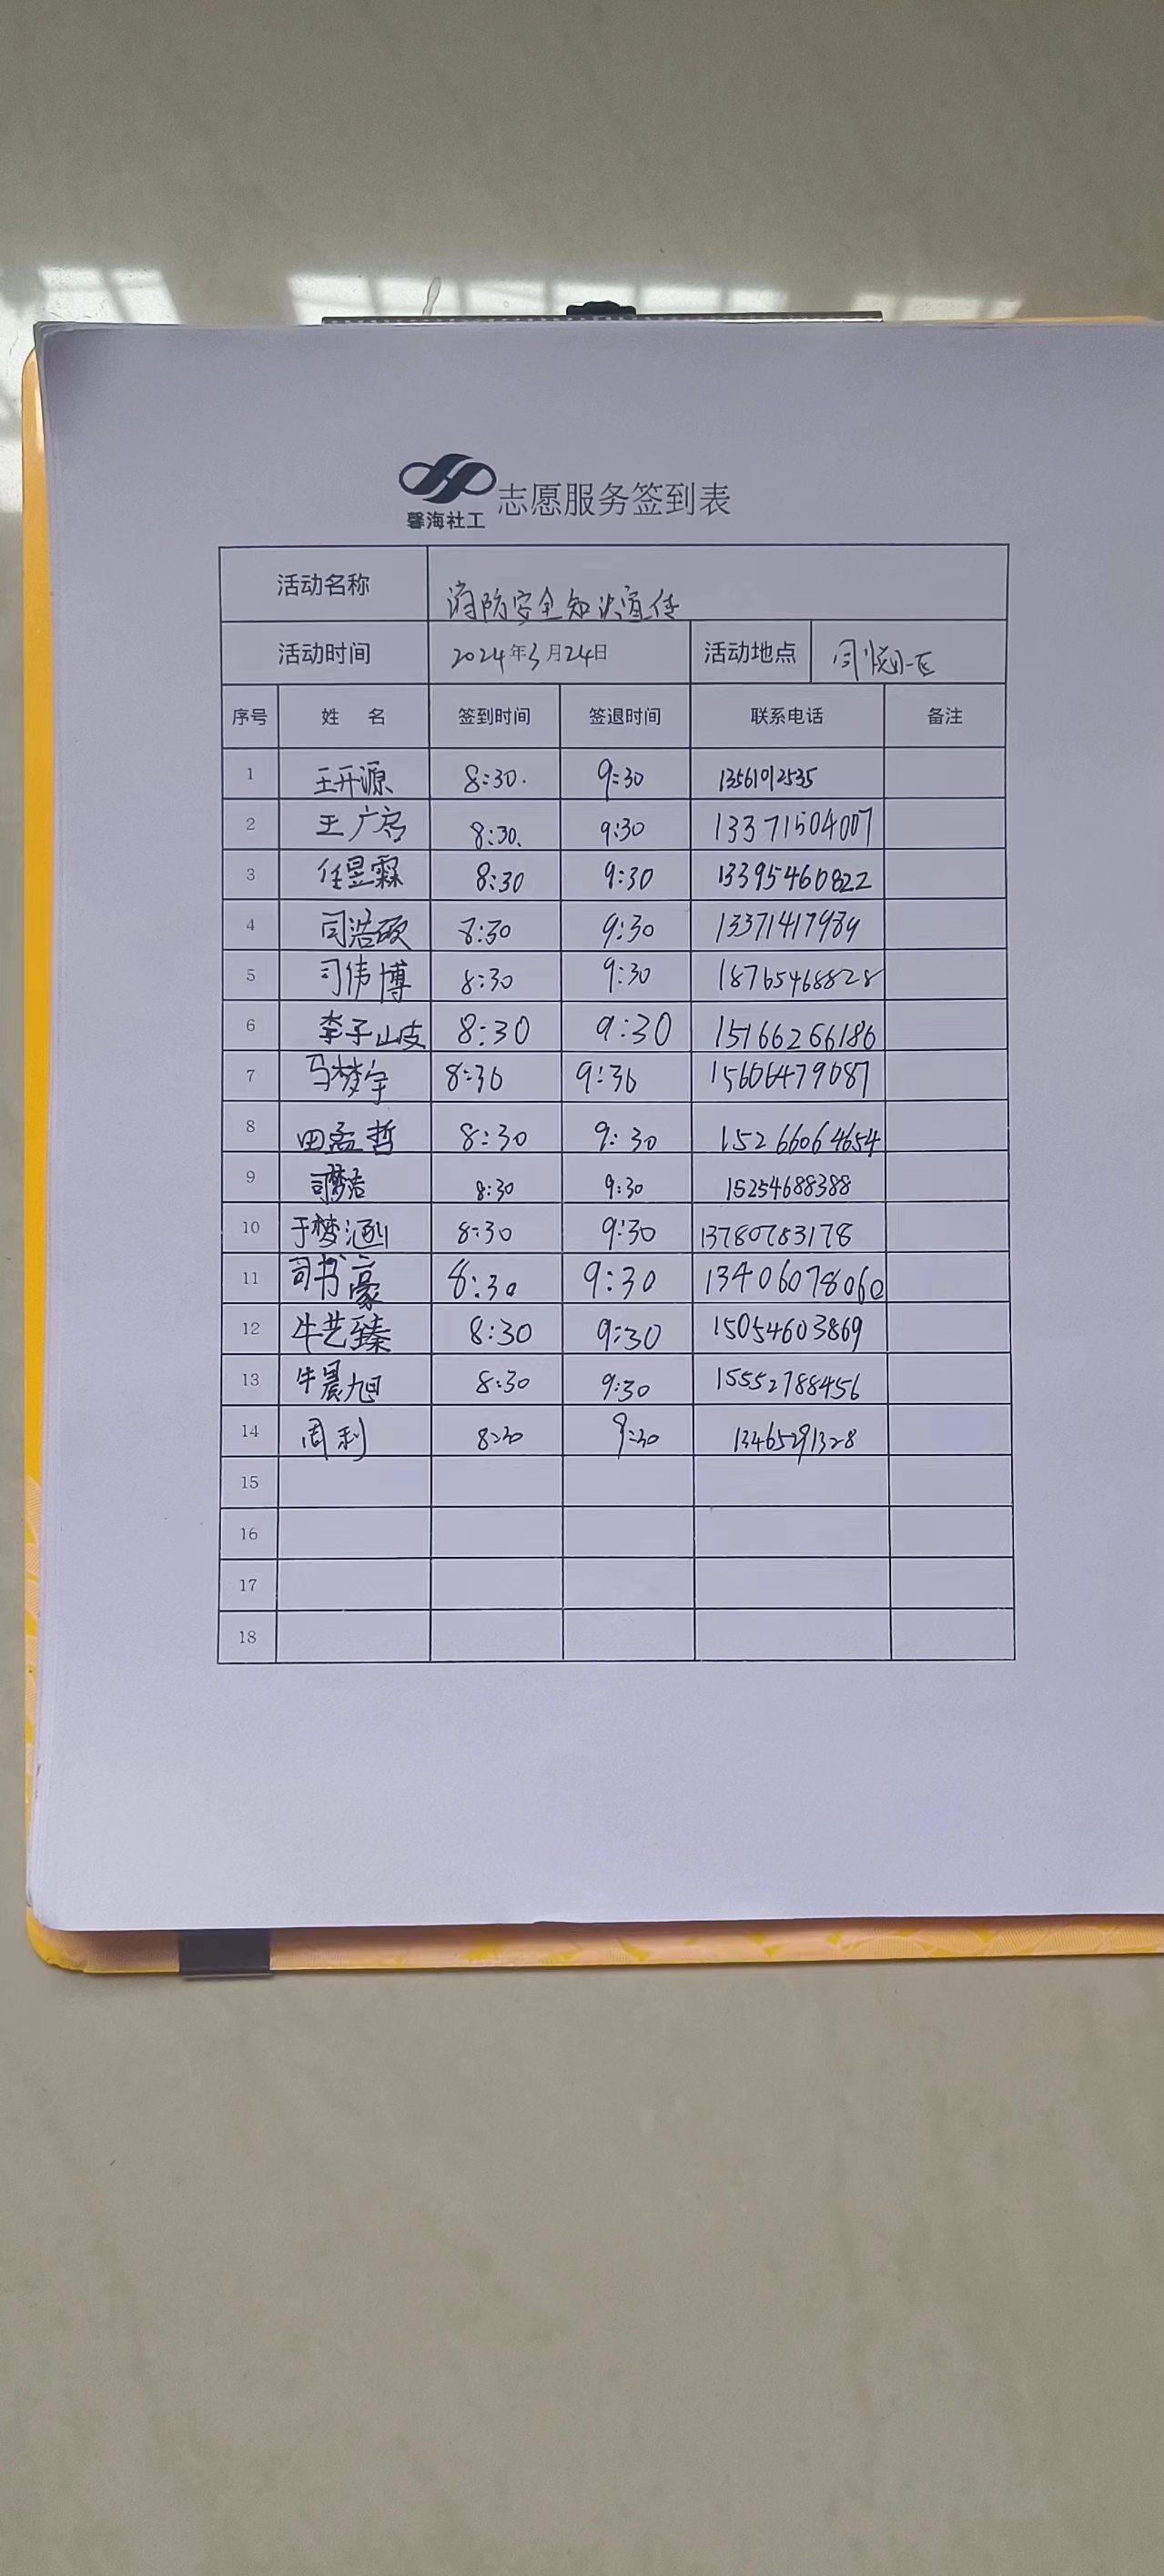 馨海社工 志愿服务签到表
活动名称 消防安全知识宣传
活动时间 2024年3月24日 活动地点 同悦小区
序号 姓 名 签到时间 签退时间 联系电话 备注
1 王开源 8:30. 9:30 1356192535
2 王广 8:30. 9:30 13371504007
3 任昱霖 8:30 9:30 13395460822
4 司浩硕 8:30 9:30 13371417989
5 司伟博 8:30 9:30 18765468828
6 李子岐 8:30 9:30 15166266186
7 马梦宇 8:30 9:30 15606479087
8 田孟哲 8:30 9:30 15266064654
9 司梦浩 8:30 9:30 15254688388
10 于梦涵 8:30 9:30 13780783178
11 司书豪 8:30 9:30 13406078060
12 牛艺臻 8:30 9:30 15054603869
13 牛晨旭 8:30 9:30 15552788456
14 周利 8:30 9:30 13465291328
15
16
17
18